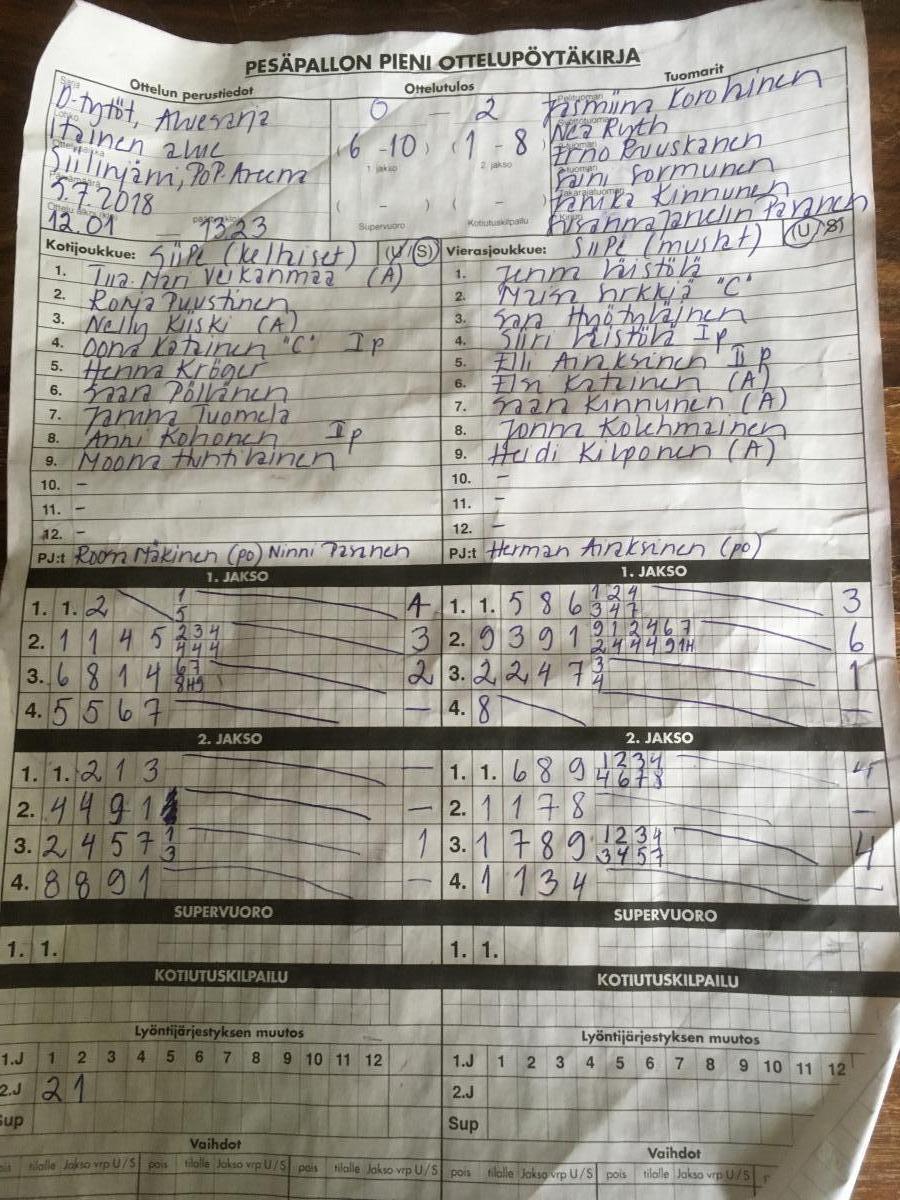 PESÄPALLON PIENI OTTELUPÖYTÄKIRJA
Ottelun perustiedot Ottelutulos Tuomarit
Sarja D-tytöt, Aluesarja 0 — 2 Pelituomari Jasmiina Korohinen
Lohko Itäinen alue (6 -10) (1 - 8) Nea Ryth
1. jakso 2. jakso
Siilinjärvi, PoP Areena Erno Ruuskanen
Päivämäärä 5.7.2018 ( - ) ( - ) Saini Sormunen
Supervuoro Kotiutuskilpailu
12.01 — 13.23 Takarajatuomari Janika Kinnunen
Kirjuri Susanna Janelin Paranen
Kotijoukkue: SiiPe (keltaiset) (U/S) Vierasjoukkue: SiiPe (mustat) (U/S)
1. Tiia-Mari Veikanmaa (A) 1. Jenna Väistölä
2. Ronja Puustinen 2. Maisa Sirkkiä "C"
3. Nelly Kiiski (A) 3. Sara Hyötyläinen
4. Oona Katainen "C" I p 4. Siiri Väistölä I p
5. Henna Kröger 5. Elli Airaksinen II p
6. Saara Pöllänen 6. Elsa Katainen (A)
7. Janina Tuomela 7. Saara Kinnunen (A)
8. Anni Kohonen II p 8. Jonna Kolehmainen
9. Moona Huhtilainen 9. Heidi Kilponen (A)
10. - 10. -
11. - 11. -
12. - 12. -
PJ:t Roosa Mäkinen (po) Ninni Paranen PJ:t Herman Airaksinen (po)
1. JAKSO 1. JAKSO
1. 1. 2 1 5 1 1. 1. 5 8 6 1 2 4 3 4 7 3
2. 1 1 4 5 2 3 4 4 4 4 3 2. 9 3 9 1 9 1 2 4 6 7 2 4 4 4 9 1H 6
3. 6 8 1 4 6 7 8 H9 2 3. 2 2 4 7 3 4 1
4. 5 5 6 7 — 4. 8 —
2. JAKSO 2. JAKSO
1. 1. 2 1 3 — 1. 1. 6 8 9 1 2 3 4 4 6 7 8 4
2. 4 4 9 1 — 2. 1 1 7 8 —
3. 2 4 5 7 1 3 1 3. 1 7 8 9 1 2 3 4 3 4 5 7 4
4. 8 8 9 1 — 4. 1 1 3 4 —
SUPERVUORO SUPERVUORO
1. 1. 1. 1.
KOTIUTUSKILPAILU KOTIUTUSKILPAILU
Lyöntijärjestyksen muutos Lyöntijärjestyksen muutos
1.J 1 2 3 4 5 6 7 8 9 10 11 12 1.J 1 2 3 4 5 6 7 8 9 10 11 12
2.J 2 1 2.J
Sup Sup
Vaihdot Vaihdot
pois tilalle Jakso vrp U/S pois tilalle Jakso vrp U/S pois tilalle Jakso vrp U/S pois tilalle Jakso vrp U/S pois tilalle Jakso vrp U/S